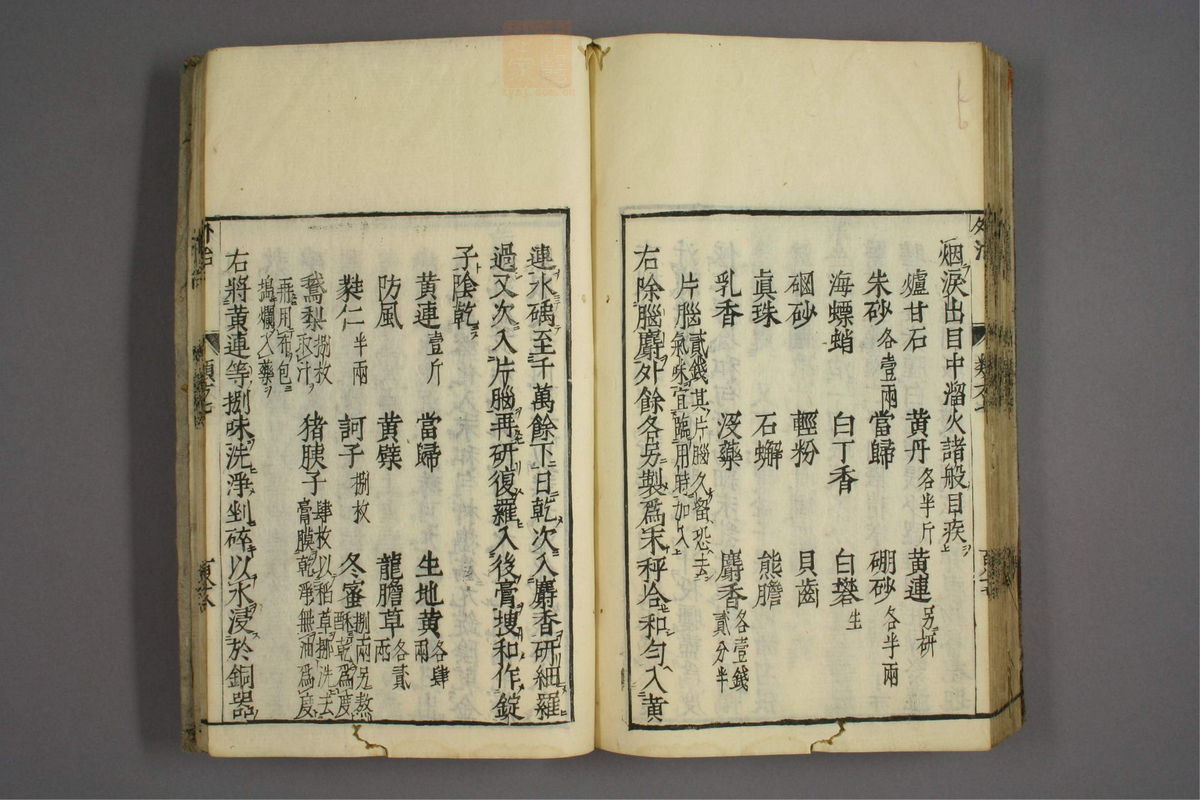 烟淚出目中溜火諸般目疾
爐甘石 黄丹各半斤 黄連另研
朱砂各壹兩 當歸 硼砂各半兩
海螵蛸 白丁香 白礬生
硇砂 輕粉 貝齒
眞珠 石蠏 熊膽
乳香 没藥 麝香各壹錢貳分半
片腦貳錢其片腦久留恐去氣味宜臨用時加入
右除腦麝外餘各另製爲末秤合和勻入黄
連水碾至千萬餘下日乾次入麝香研細羅
過又次入片腦再研復羅入後膏搜和作錠
子陰乾
黄連壹斤 當歸 生地黄各肆兩
防風 黄蘗 龍膽草各貳兩
蕤仁半兩 訶子捌枚 冬蜜捌兩另熬酥乾爲度
鵞梨捌枚取汁 猪胰子肆枚以稻草挪洗去膏膜乾淨無油爲度
再用布包搗爛入藥
右將黄連等捌味洗淨剉碎以水浸於銅器